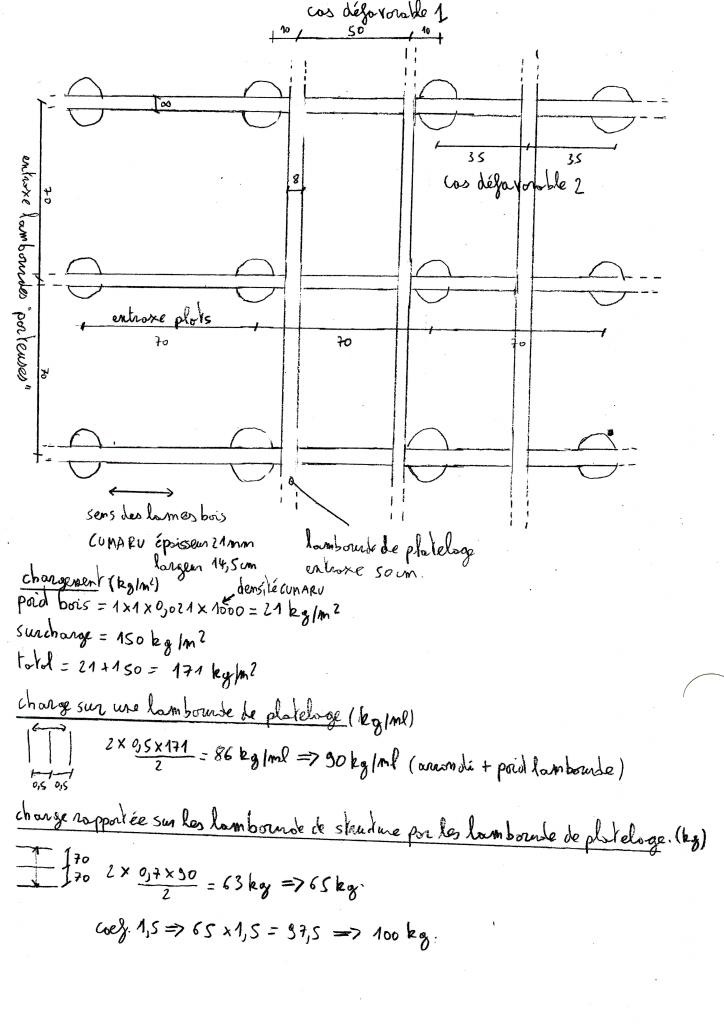 cas défavorable 1
10 50 10
8
35 35
cas défavorable 2
8
70
entraxe lambourdes "porteuses"
entraxe plots
70 70 70
70
sens des lames bois
CUMARU épaisseur 21mm
largeur 14,5cm
lambourde de platelage
entraxe 50cm.
chargement (kg/m²)
densité CUMARU
poid bois = 1x1x0,021x1000 = 21 kg/m²
surcharge = 150 kg/m²
total = 21+150 = 171 kg/m²
charge sur une lambourde de platelage (kg/ml)
2 x 0,5x171 / 2 = 86 kg/ml => 90 kg/ml (arrondi + poid lambourde)
0,5 0,5
charge rapportée sur les lambourde de structure par les lambourde de platelage. (kg)
70
70
2 x 0,7x90 / 2 = 63 kg => 65 kg.
coef. 1,5 => 65 x 1,5 = 97,5 => 100 kg.